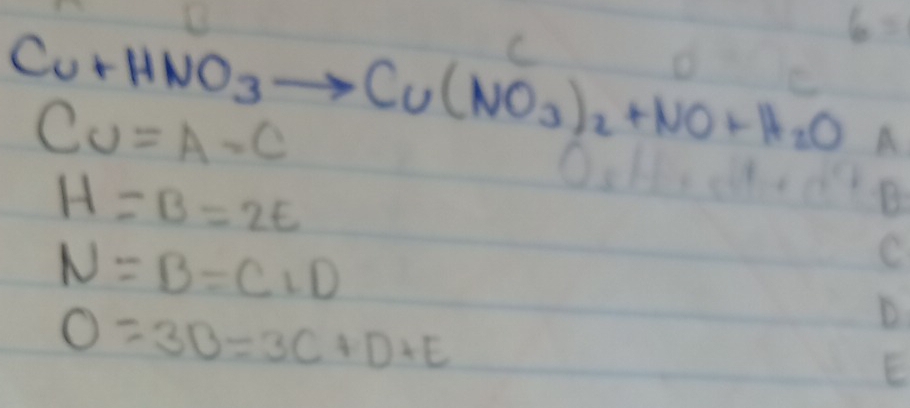 B C D C 6=
Cu + HNO3 → Cu(NO3)2 + NO + H2O
Cu = A - C A
H = B = 2E B
N = B = C + D C
O = 3B = 3C + D + E D
E